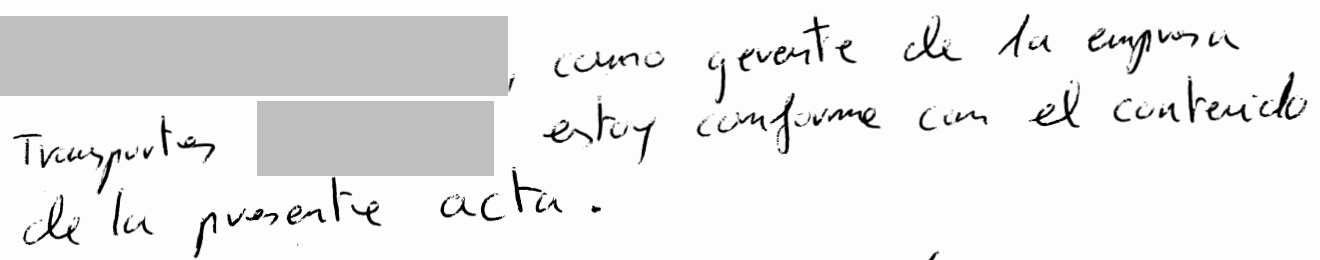 , como gerente de la empresa
Transportes estoy conforme con el contenido
de la presente acta.